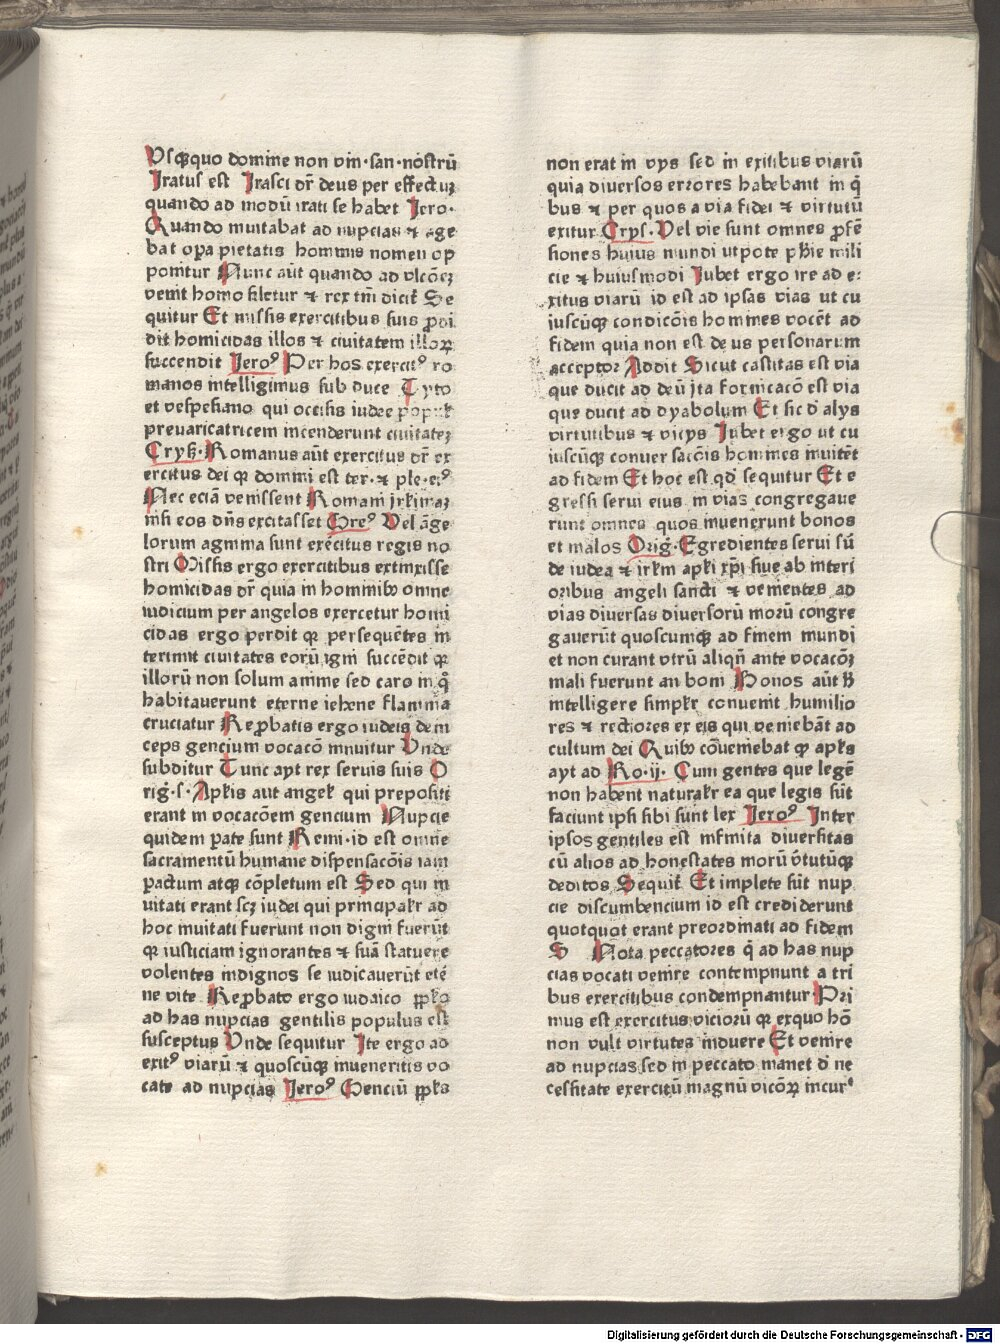 Vsq̄quo domine non vin·san·nostrū
Iratus est Irasci dr̄ deus per effectuꝫ
quando ad modū irati se habet Jero·
Quando inuitabat ad nupcias ⁊ age
bat oꝑa pietatis hominis nomen op
ponitur Nunc aūt quando ad vlcōeꝫ
venit homo siletur ⁊ rex tm̄ dicit̄ Se
quitur Et missis exercitibus suis ꝑdi
dit homicidas illos ⁊ ciuitatem illoꝝ
succendit Jeroꝰ Per hos exercitꝰ ro
manos intelligimus sub duce Tyto
et vespesiano qui occisis iudee populis
preuaricatricem incenderunt ciuitateꝫ
Crys· Romanus aūt exercitus dr̄ ex
ercitus dei qꝛ domini est ter·⁊ ple·eiꝰ
Nec eciā venissent Romani irl̄imaꝫ
nisi eos dn̄s excitasset Greꝰ Vel āge
lorum agmina sunt execitus regis no
stri Missis ergo exercitibus extinxisse
homicidas dr̄ quia in hominibꝰ omne
iudicium per angelos exercetur homi
cidas ergo perdit qꝛ persequētes in
terimit ciuitates eorū igni succēdit qꝛ
illorū non solum anime sed caro in q̄
habitauerunt eterne iehene flamma
cruciatur Reꝓbatis ergo iudeis dein
ceps gencium vocacō innuitur Vnde
subditur Tunc ayt rex seruis suis O
riḡ·s· Apl̄is aut angel̄ qui prepositi
erant in vocacōem gencium Nupcie
quidem ꝑate sunt Remi·id est omne
sacramentū humane dispensacōis iam
ꝑactum atqꝫ cōpletum est Sed qui in
uitati erant scꝫ iudei qui principalr̄ ad
hoc inuitati fuerunt non digni fuerūt
qꝛ iusticiam ignorantes ⁊ suā statuere
volentes indignos se iudicauerūt etē
ne vite Reꝓbato ergo iudaico ppl̄o
ad has nupcias gentilis populus est
susceptus Vnde sequitur Ite ergo ad
exitꝰ viarū ⁊ quoscūqꝫ inueneritis vo
cate ad nupcias Jeroꝰ Genciū ppl̄s
non erat in vijs sed in exitibus viarū
quia diuersos errores habebant in q̄
bus ⁊ per quos a via fidei ⁊ virtutū
exitur Crys· Vel vie sunt omnes ꝓfe
siones huius mundi utpote ph̄ie mili
cie ⁊ huiusmodi Jubet ergo ire ad e:
xitus viarū id est ad ipsas vias ut cu
iuscūqꝫ condicōis homines vocēt ad
fidem quia non est deus personarum
acceptor Addit Sicut castitas est via
que ducit ad deū ita fornicacō est via
que ducit ad dyabolum Et sic d̄ alijs
virtutibus ⁊ vicijs Jubet ergo ut cu
iuscūqꝫ conuersacōis homines inuitēt
ad fidem Et hoc est qd̄ sequitur Et e
gressi serui eius in vias congregaue
runt omnes quos inuenerunt bonos
et malos Oriḡ·Egredientes serui sū
de iudea ⁊ irl̄m apl̄i xp̄i siue ab interi
oribus angeli sancti ⁊ venientes ad
vias diuersas diuersorū morū congre
gauerūt quoscumqꝫ ad finem mundi
et non curant vtrū aliqn̄ ante vocacōꝫ
mali fuerunt an boni Bonos aūt h̄
intelligere simplr̄ conuenit humilio
res ⁊ rectiores ex eis qui veniebāt ad
cultum dei Quibꝰ cōueniebat qꝛ apl̄s
ayt ad Ro·ij· Cum gentes que legē
non habent naturalr̄ ea que legis sūt
faciunt ipsi sibi sunt lex Jeroꝰ Inter
ipsos gentiles est infinita diuersitas
cū alios ad honestates morū v̄tutūqꝫ
deditos Sequit̄ Et implete sūt nup
cie discumbencium id est crediderunt
quotquot erant preordinati ad fidem
S Nota peccatores q̄ ad has nup
cias vocati venire contempnunt a tri
bus exercitibus condempnantur Pri
mus est exercitus viciorū qꝛ exquo hō
non vult virtutes induere Et venire
ad nupcias sed in peccato manet d̄ ne
cessitate exercitū magnū vicōꝝ incur
Digitalisierung gefördert durch die Deutsche Forschungsgemeinschaft - DFG